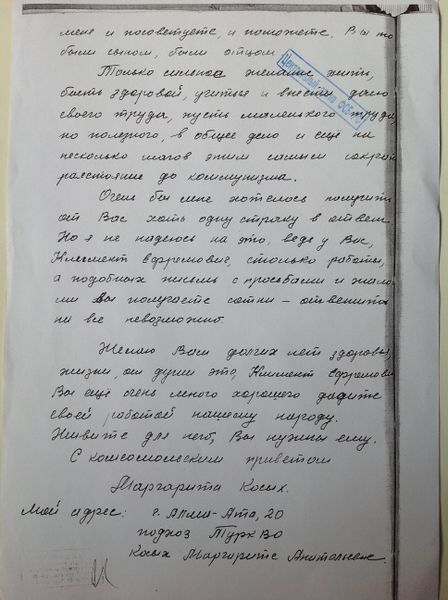 меня и посоветуете, и поможете. Вы то
были сыном, были отцом.
Только сильное желание жить,
быть здоровой, учиться и внести долю
своего труда, пусть маленького труда,
но полезного, в общее дело и ещё на
несколько шагов этим самым сокра
расстояние до коммунизма.
Очень бы мне хотелось получить
от Вас хоть одну строчку в ответ.
Но я не надеюсь на это, ведь у Вас,
Климент Ефремович, столько работы,
а подобных письмь с просьбами и жало
ми Вы получаете сотни – ответить
на все невозможно.
Желаю Вам долгих лет здоровья,
жизни, от души это, Климент Ефремови
Вы ещё очень много хорошего дадите
своей работой нашему народу.
Живите для него, Вы нужны ему.
С комсомольским приветом
Маргарита Косых.
Мой адрес: г. Алма-Ата, 20
подхоз ТуркВО
Косых Маргарите
Центральный ФСБ